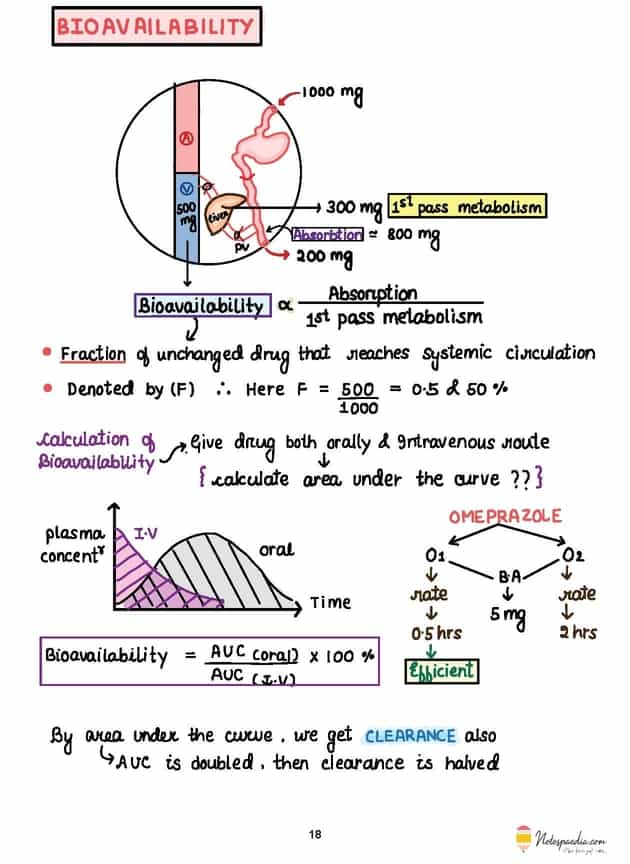 BIOAVAILABILITY
1000 mg
A
V
500 mg
liver
300 mg 1st pass metabolism
Absorbtion = 800 mg
PV
200 mg
Bioavailability ∝ Absorption / 1st pass metabolism
• Fraction of unchanged drug that reaches systemic circulation
• Denoted by (F) ∴ Here F = 500/1000 = 0.5 & 50 %
Calculation of Bioavailability → Give drug both orally & Intravenous route
↓
{ calculate area under the curve ?? }
plasma
concentrⁿ
I.V
oral
Time
OMEPRAZOLE
O1 O2
B.A
rate ↓ rate
↓ 5 mg ↓
0.5 hrs 2 hrs
↓
Efficient
Bioavailability = AUC (oral) / AUC (I.V) × 100 %
By area under the curve, we get CLEARANCE also
↳ AUC is doubled, then clearance is halved
18
Notespaedia.com